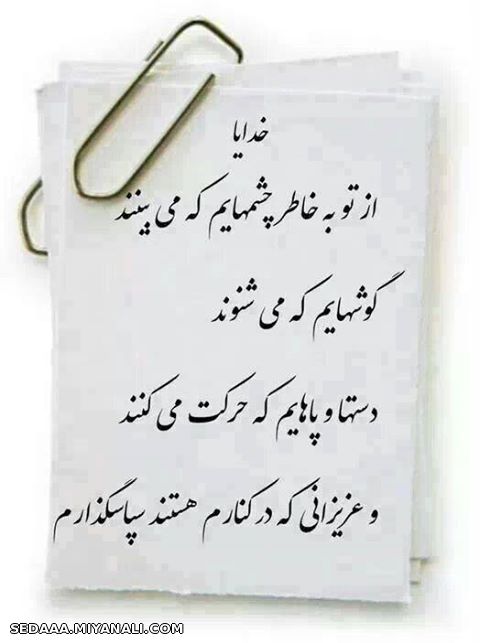 خدایا
از تو به خاطر چشمهایم که می بینند
گوشهایم که می شنوند
دستها و پاهایم که حرکت می کنند
و عزیزانی که در کنارم هستند سپاسگذارم
SEDAAA.MIYANALI.COM